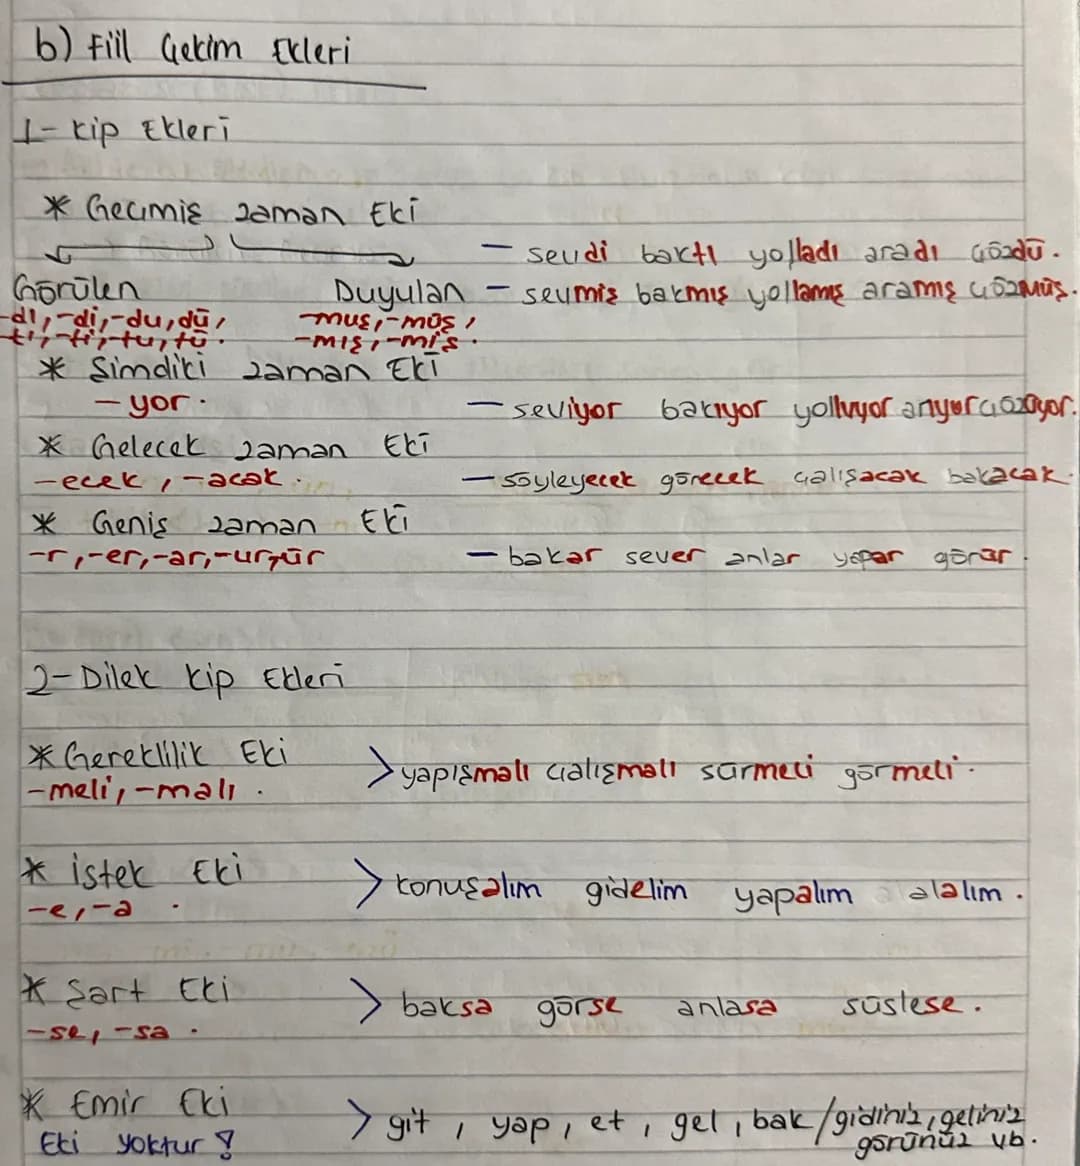 b) Fiil Çekim Ekleri
1- Kip Ekleri
* Geçmiş zaman Eki
— sevdi baktı yolladı aradı çözdü.
Görülen Duyulan — sevmiş bakmış yollamış aramış çözmüş.
-dı, -di, -du, dü, -muş, -müş,
tı, -ti, -tu, tü. -mış, -miş.
* Şimdiki zaman Eki
— yor. — seviyor bakıyor yolluyor arıyor çözüyor.
* Gelecek zaman Eki
-ecek, -acak. — söyleyecek görecek çalışacak bakacak.
* Geniş zaman Eki
-r, -er, -ar, -ur, ür — bakar sever anlar yapar görür.
2- Dilek Kip Ekleri
* Gereklilik Eki > yapışmalı çalışmalı sürmeli görmeli.
-meli, -malı.
* istek Eki > konuşalım gidelim yapalım alalım.
-e, -a.
* Şart Eki > baksa görse anlasa süslese.
-se, -sa.
* Emir Eki > git, yap, et, gel, bak / gidiniz, geliniz
Eki yoktur! görünüz vb.